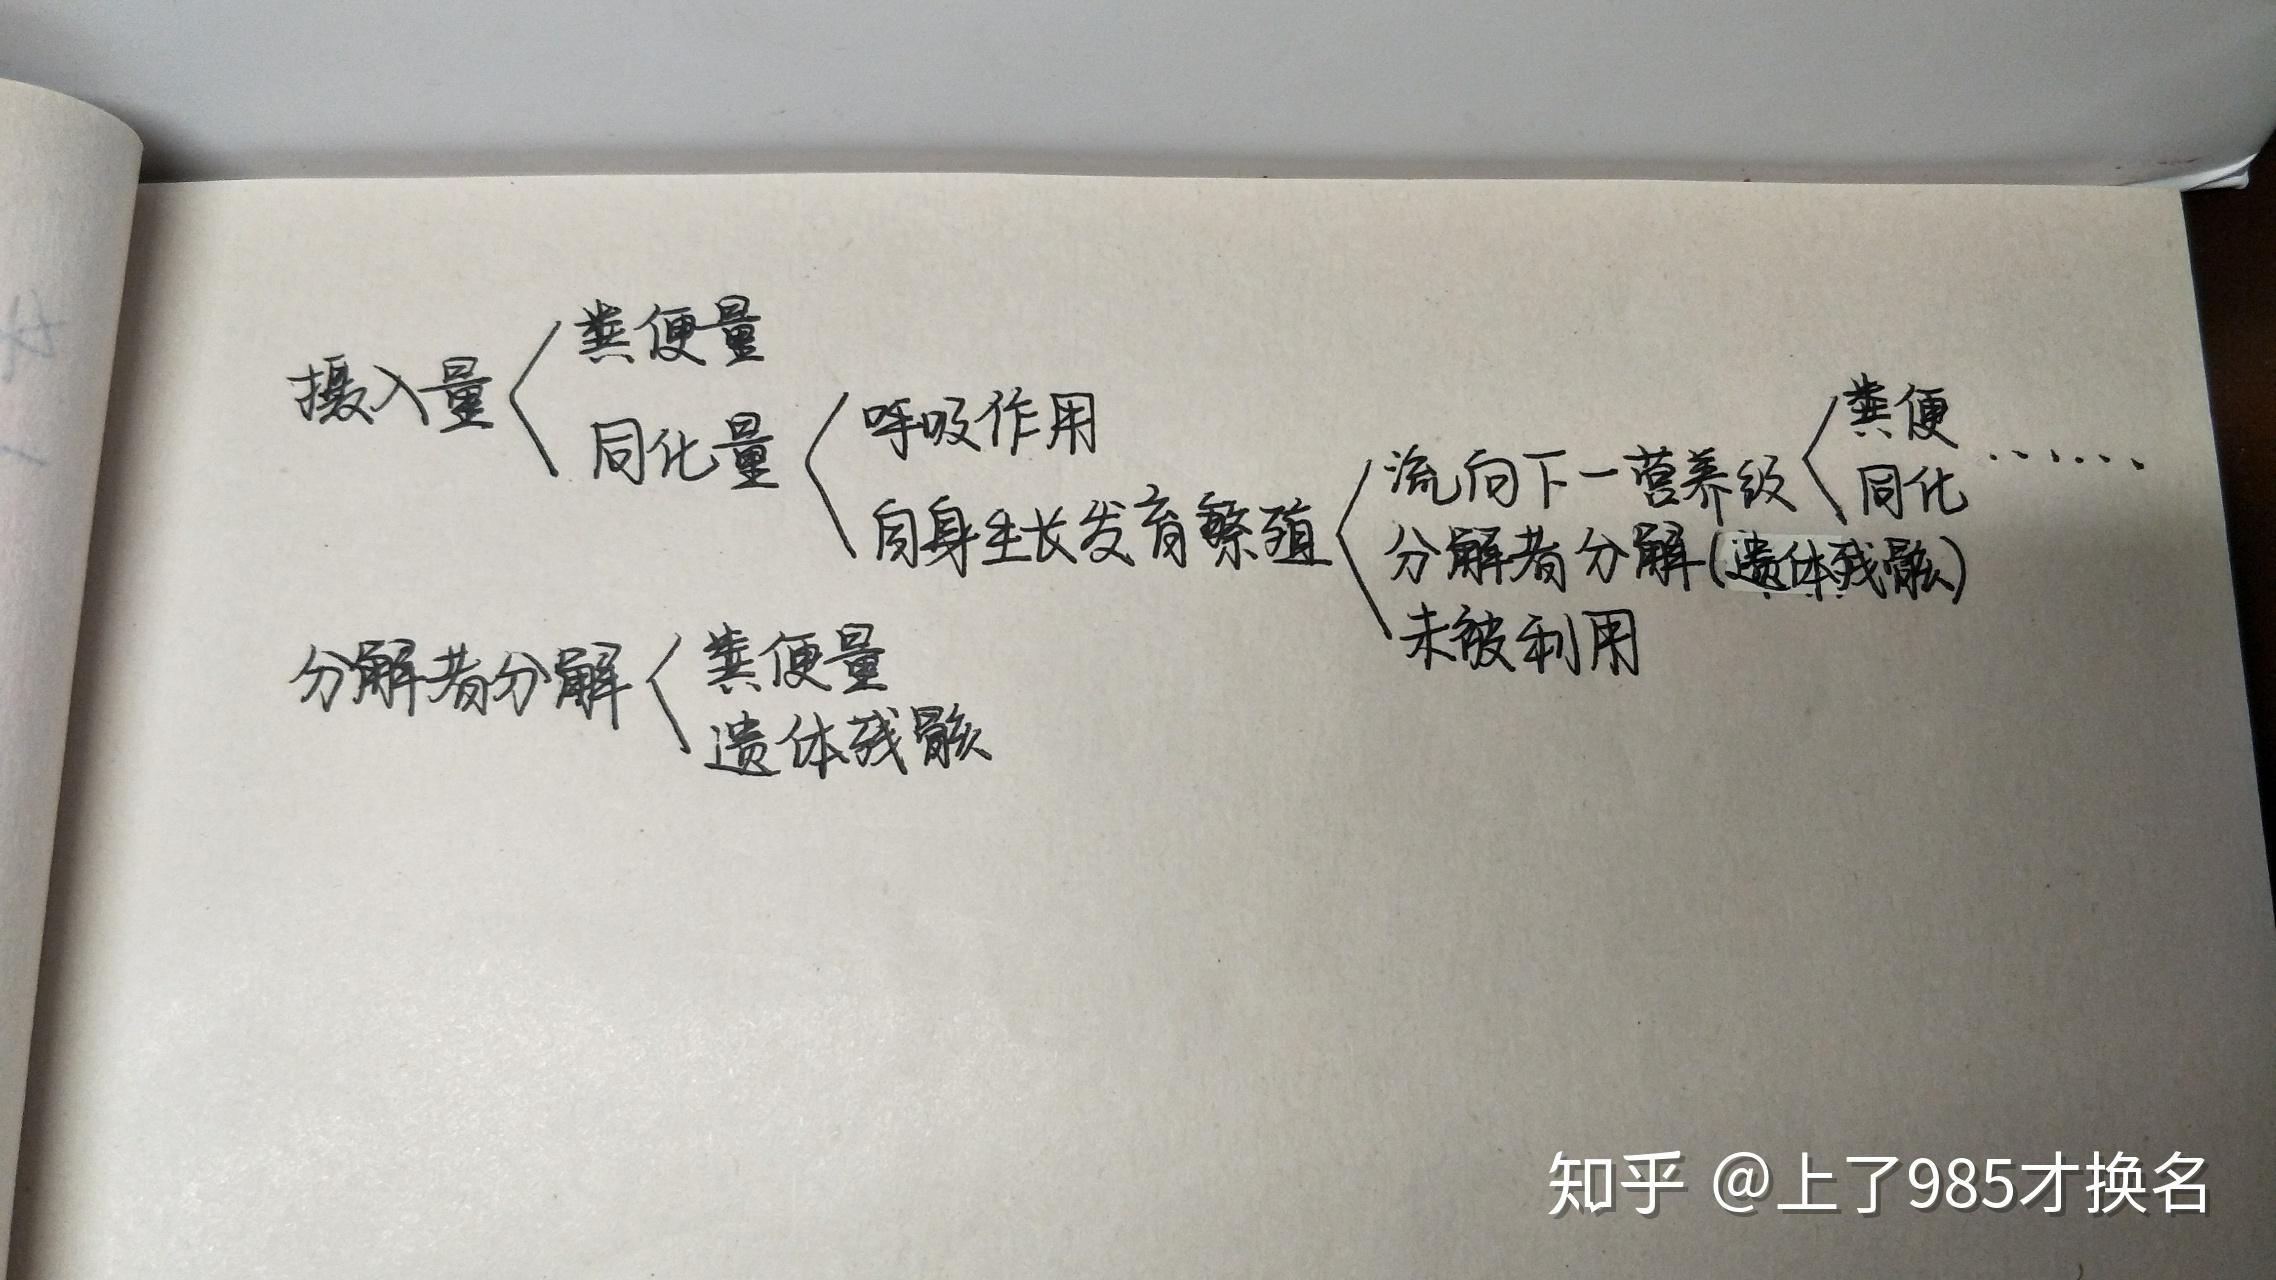 摄入量
粪便量
同化量
呼吸作用
自身生长发育繁殖
流向下一营养级
粪便
同化
……
分解者分解(遗体残骸)
未被利用
分解者分解
粪便量
遗体残骸
知乎 @上了985才换名